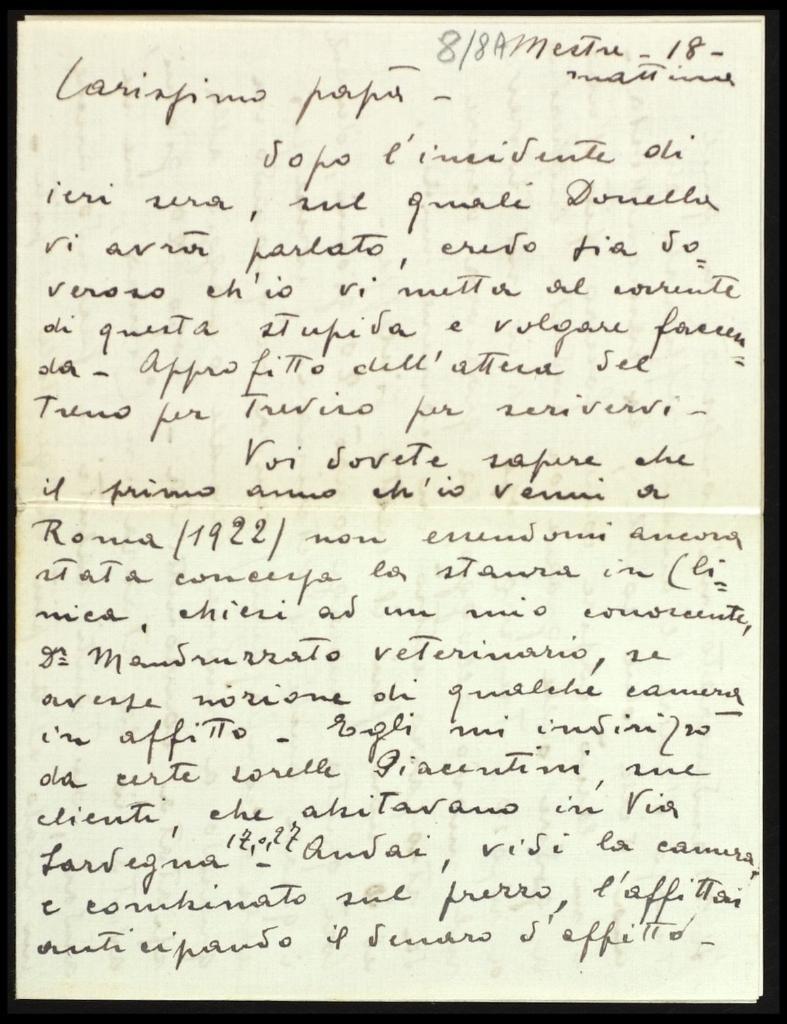 8/8A Mestre - 18 -
mattina
Carissimo papà -
dopo l'incidente di
ieri sera, sul quale Donella
vi avrà parlato, credo sia do=
veroso ch'io vi metta al corrente
di questa stupida e volgare faccen=
da - Approfitto dell'attesa del
treno per Treviso per scrivervi -
Voi dovete sapere che
il primo anno ch'io venni a
Roma (1922) non essendomi ancora
stata concessa la stanza in Cli=
nica, chiesi ad un mio conoscente,
Dr Mandruzzato veterinario, se
avesse nozione di qualche camera
in affitto - Egli mi indirizzò
da certe sorelle Piacentini, sue
clienti, che abitavano in Via
Sardegna - Andai, vidi la camera,
e combinato sul prezzo, l'affittai
anticipando il denaro d'affitto -